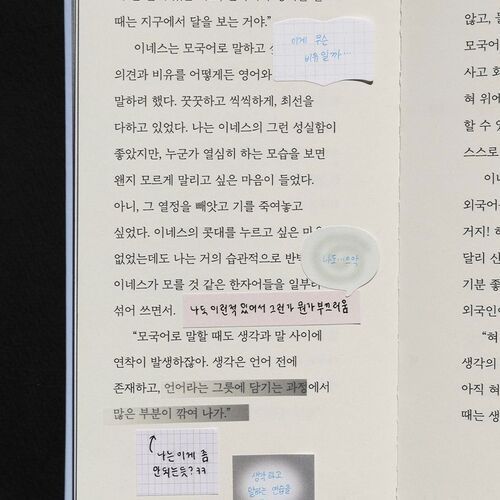 때는 지구에서 달을 보는 거야."
이네스는 모국어로 말하고 싶
의견과 비유를 어떻게든 영어와
말하려 했다. 꿋꿋하고 씩씩하게, 최선을
다하고 있었다. 나는 이네스의 그런 성실함이
좋았지만, 누군가 열심히 하는 모습을 보면
왠지 모르게 말리고 싶은 마음이 들었다.
아니, 그 열정을 빼앗고 기를 죽여놓고
싶었다. 이네스의 콧대를 누르고 싶은 마
없었는데도 나는 거의 습관적으로 반박
이네스가 모를 것 같은 한자어들을 일부러
섞어 쓰면서.
"모국어로 말할 때도 생각과 말 사이에
연착이 발생하잖아. 생각은 언어 전에
존재하고, 언어라는 그릇에 담기는 과정에서
많은 부분이 깎여 나가."
이게 무슨
비유일까...
나도 이런적 있어서 그런가 뭔가 부끄러움
나는 이게 좀
안되는듯?ㅋㅋ
생각하고
말하는 연습을
않고,
모국어
사고 회
혀 위에
할 수 있
스스로
이네
외국어
거지! 하
달리 신
기분 좋
외국인
"혀
생각의
아직 혀
때는 생